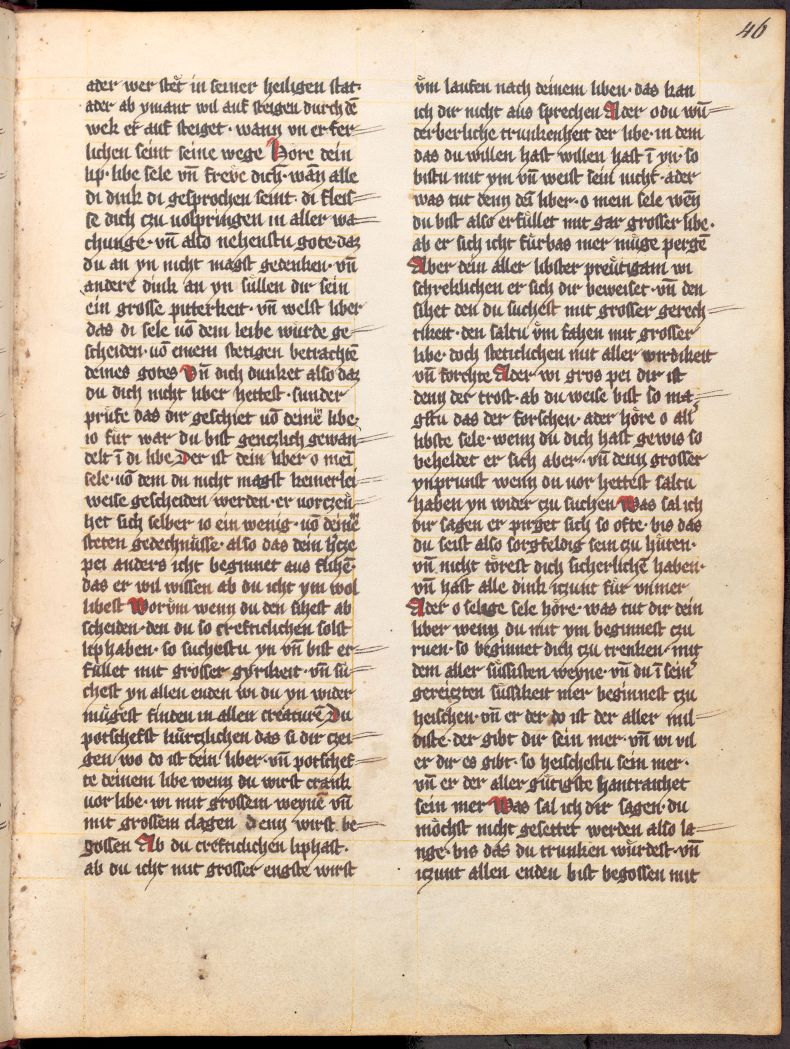 46
ader wer stet in seiner heiligen stat·
ader ab ymant wil auf steigen durch dē
wek er auf steiget· wann vn er for
lichen seint seine wege Hore dein
lip· libe sele vn̄ frewe dich· wān alle
di dink di gesprochen seint· di fleis
se dich czu volpringen in aller wa
chunge· vn̄ also nehenstu gote· daz
du an yn nicht magst gedenken· vn̄
andere dink an yn sullen dir sein
ein grosse pitterkeit· vn̄ welst liber
das di sele vō dem leibe wurde ge
scheiden· vō einem stetigen betrachtē
deines gotes Vn̄ dich dunket also daz
du dich nicht liber hettest· sunder
prufe das dir geschiet vō deinē libe·
io für war du bist genczlich gewan
delt ī di libe Der ist dein liber o mei
sele· vō dem du nicht magst keinerlei
weise gescheiden werden· er vorczeu
het sich selber io ein wenig· vō deinē
steten gedechnüsse· also das dein hʼcze
pei anders icht beginnet aus flihē·
das er wil wissen ab du icht ym wol
libest Worüm wenn du den sihest ab
scheiden· den du so crefticlichen solst
liphaben· so suchestu yn vn̄ bist er
füllet mit grosser gyrikeit· vn̄ su
chest yn allen enden wi du yn wider
mügest finden in allen creaturē Du
potschefst kürczlichen das si dir czei
gen wo do ist dein liber· vn̄ potschef
te deinem libe wenn du wirst crank
vor libe· wi mit grossem weynē vn̄
mit grossem clagen Denn wirst be
gossen Ab du crefticlichen liphast·
ab du icht mit grosser engste wirst
üm laufen nach deinem liben· das kan
ich dir nicht aus sprechen Ader o du wū
derberliche trunkenheit der libe· in dem
das du willen hast willen hast ī yn· so
bistu mit ym vn̄ weist sein nicht· ader
was tut denn dein liber· o mein sele wen̄
du bist also erfüllet mit gar grosser libe·
ab er sich icht fürbas mer müge pergē
Aber dein aller libster preütigam wi
schreklichen er sich dir beweiset· vn̄ den
sihet den du suchest mit grosser gerech
tikeit· den saltu üm fahen mit grosser
libe· doch steticlichen mit aller wirdikeit
vn̄ forchte Ader wi gros pei dir ist
denn der trost· ab du weise bist so ma
gstu das der forschen· ader höre o allʼ
libste sele· wenn du dich hast gewis so
beheldet er sich aber· vn̄ denn grosser
ynprunst wenn du vor hettest saltu
haben yn wider czu suchen Was sal ich
dir sagen er pirget sich so ofte· bis das
du seist also sorgfeldig sein czu hüten·
vn̄ nicht törest dich sicherlichē haben·
vn̄ hast alle dink iczunt für nimer
Ader o selige sele höre· was tut dir dein
liber wenn du mit ym beginnest czu
ruen· so beginnet dich czu trenken· mit
dem aller süssisten weyne· vn̄ du ī seinʼ
gereiczten süssikeit mer beginnest czu
heischen· vn̄ er der do ist der aller mil
diste· der gibt dir sein mer· vn̄ wi vil
er dir es gibt· so heischestu sein mer·
vn̄ er der aller gütigste hantraichet
sein mer Was sal ich dir sagen· du
möchst nicht gesettet werden also la
nge· bis das du trunken würdest· vn̄
iczunt allen enden bist begossen mit